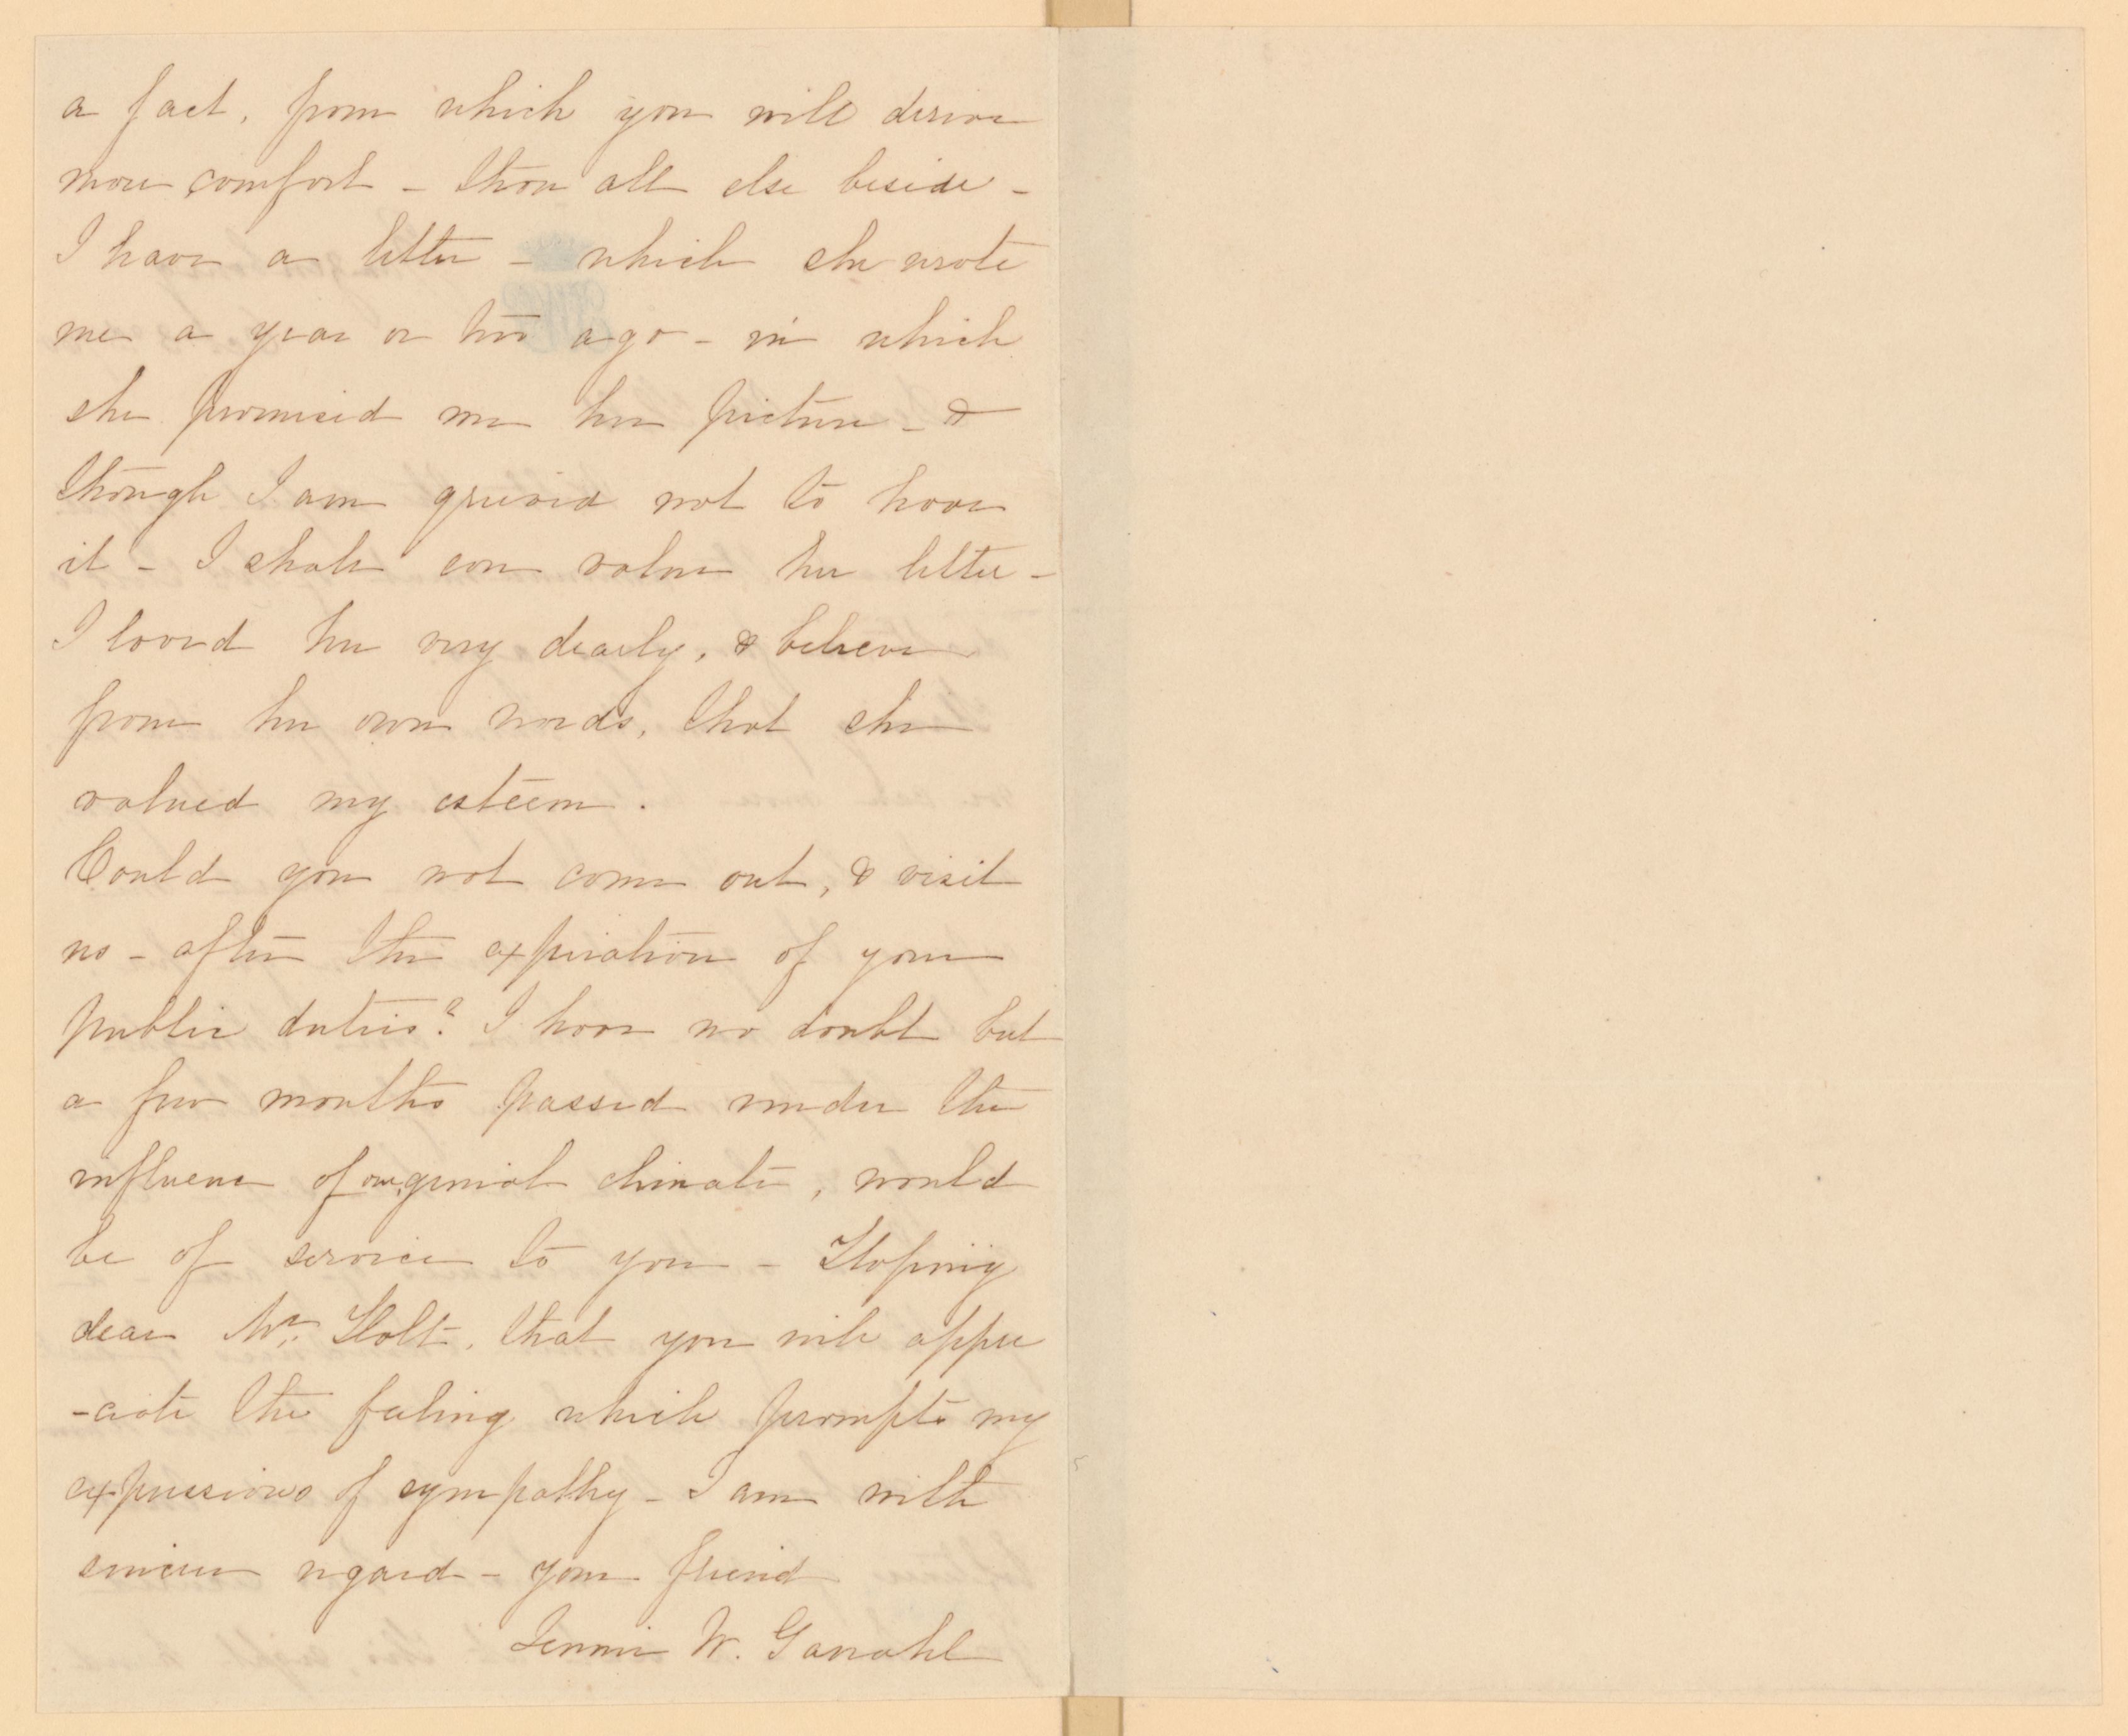 a fact, from which you will derive
more comfort - than all else beside -
I have a letter - which she wrote
me a year or two ago - in which
she promised me her picture - &
though I am grieved not to have
it - I shall ever value her letter -
I loved her very dearly, & believe
from her own words, that she
valued my esteem.
Could you not come out, & visit
us - after the expiration of your
public duties? I have no doubt but
a few months passed under the
influence of our genial climate, would
be of service to you - Hoping
dear Mr. Holt, that you will appre
-ciate the feeling which prompts my
expressions of sympathy - I am with
sincere regard - your friend
Jennie W. Ganahl